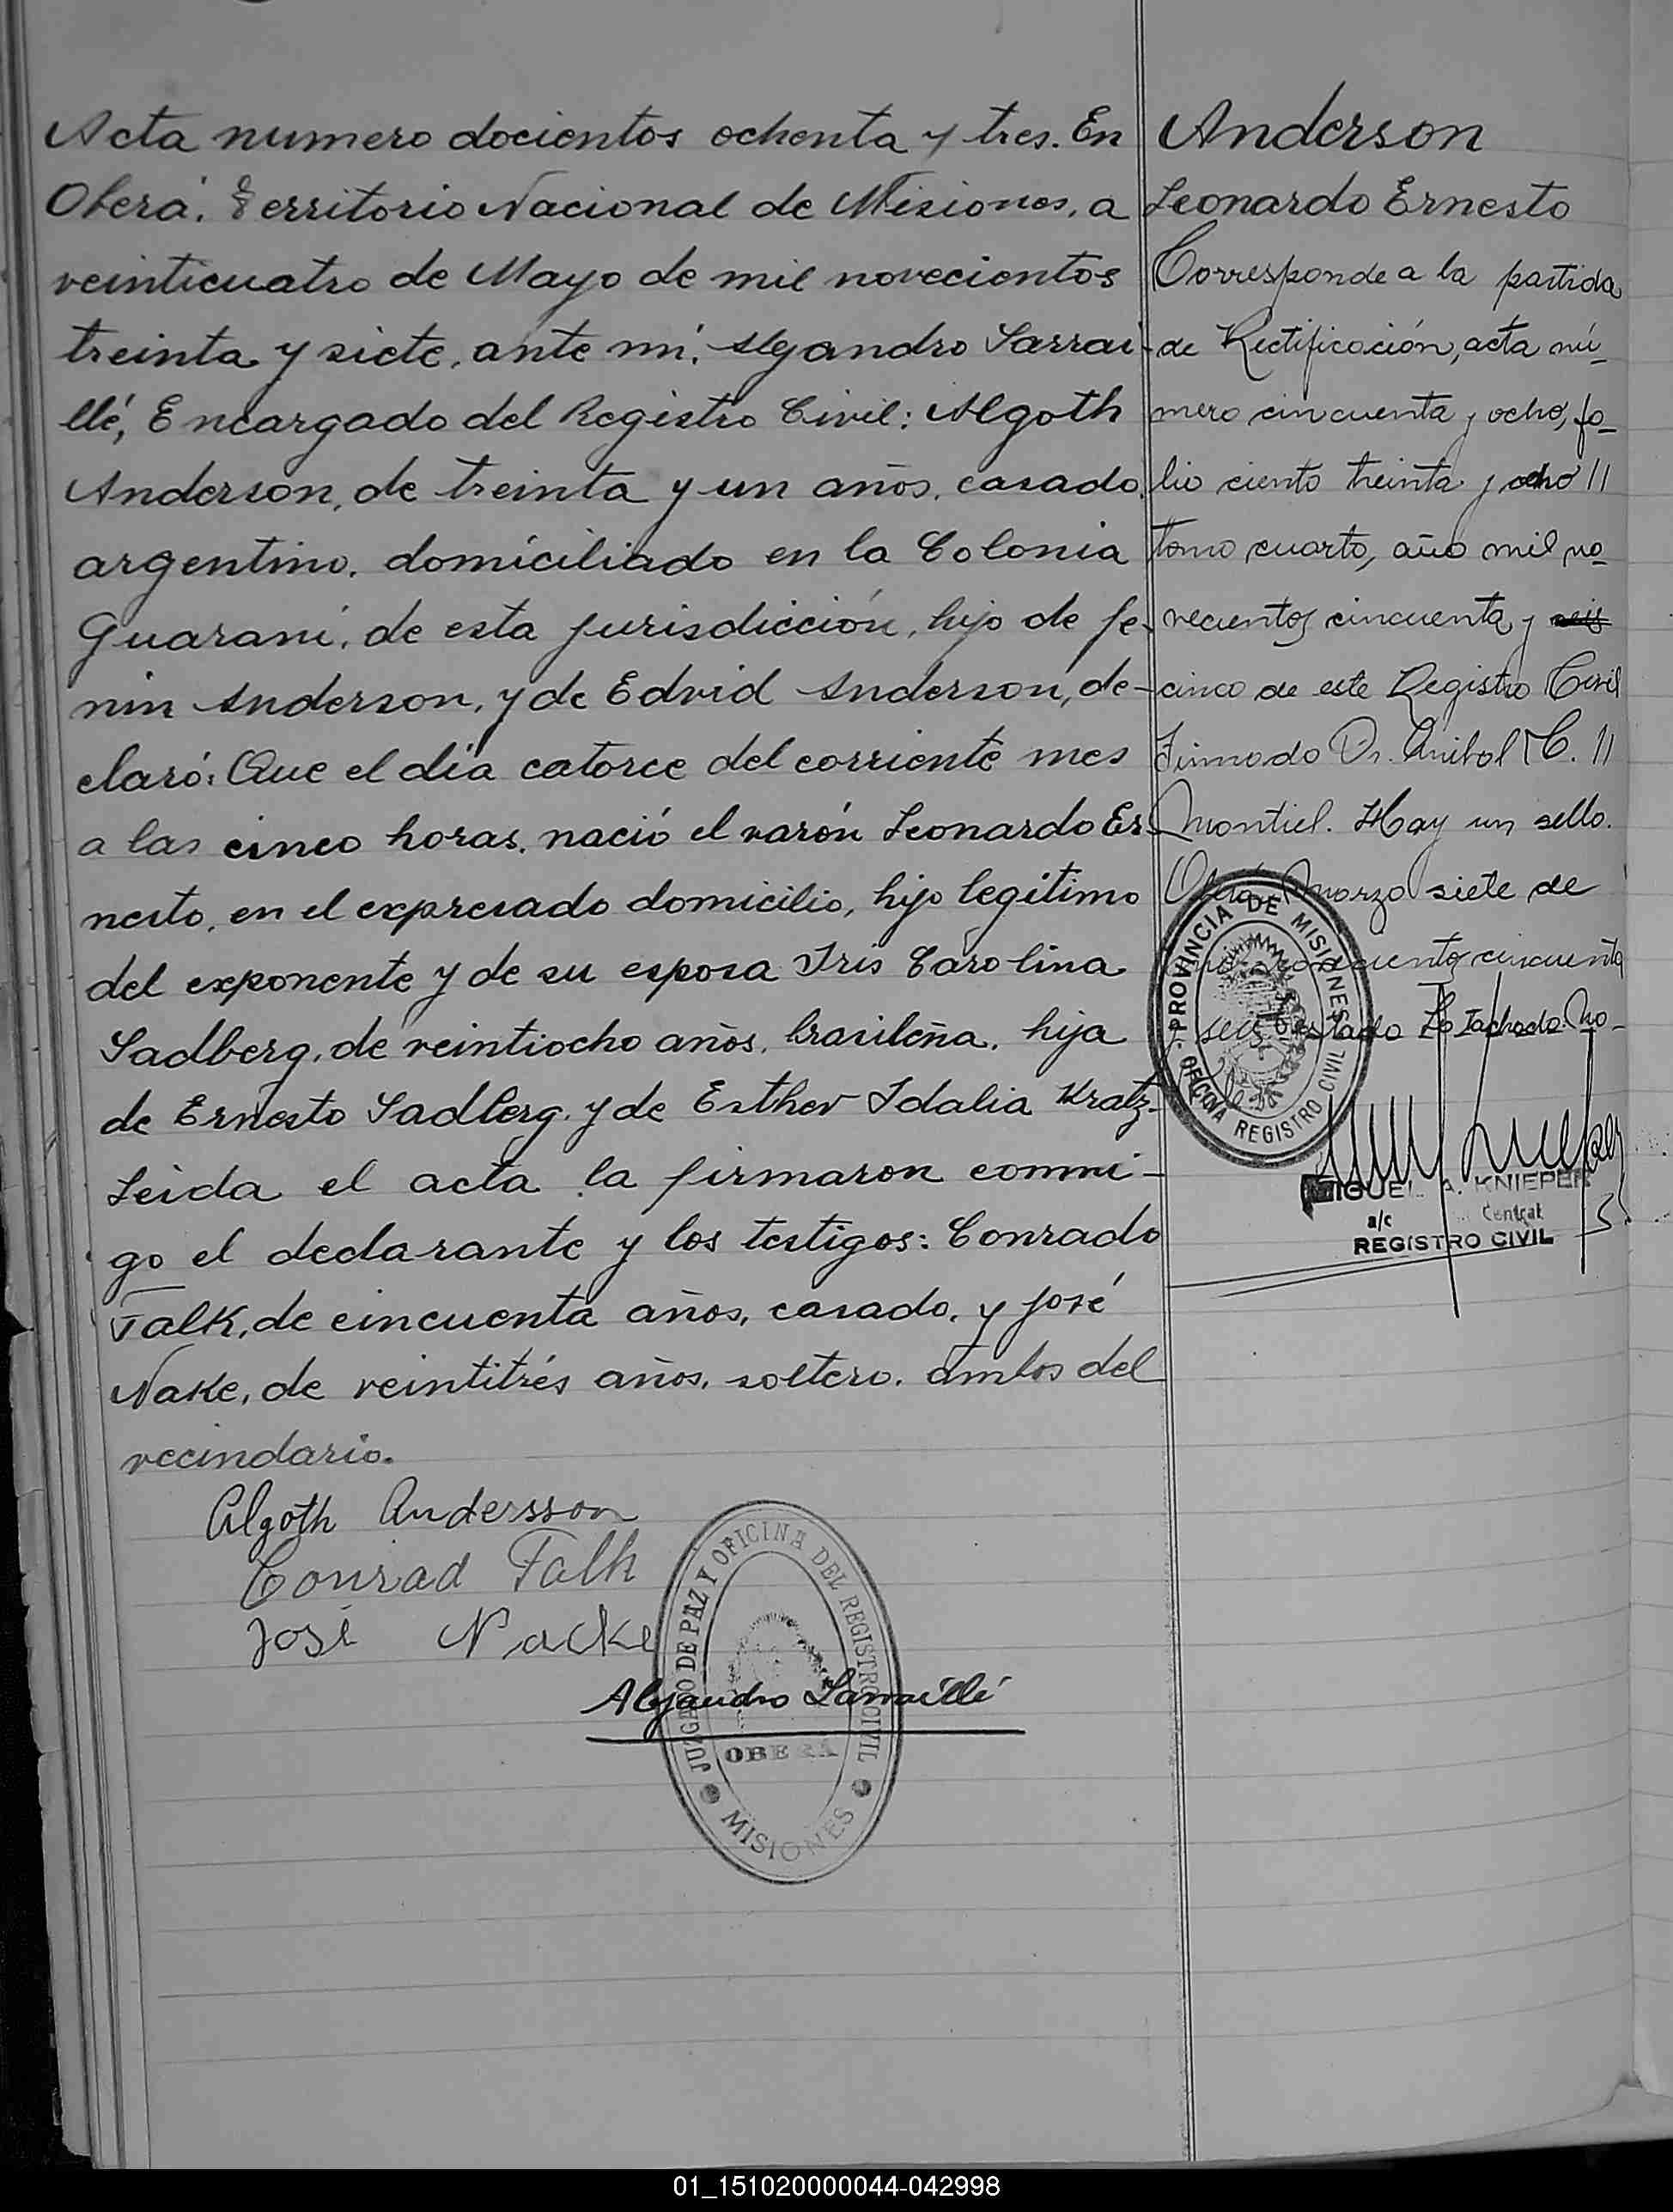 Acta numero docientos ochenta y tres. En
Oberá, Territorio Nacional de Misiones, a
veinticuatro de Mayo de mil novecientos
treinta y siete, ante mí, Alejandro Larrai-
llé, Encargado del Registro Civil: Algoth
Anderson, de treinta y un años, casado,
argentino, domiciliado en la Colonia
Guaraní, de esta jurisdicción, hijo de Fe-
nin Anderson, y de Edvid Anderson, de-
claró: Que el día catorce del corriente mes
a las cinco horas, nació el varón Leonardo Er-
nesto, en el expresado domicilio, hijo legítimo
del exponente y de su esposa Iris Carolina
Sadberg, de veintiocho años, brasileña, hija
de Ernesto Sadberg y de Esther Idalia Kratz-
Leida el acta la firmaron conmi-
go el declarante y los testigos: Conrado
Falk, de cincuenta años, casado, y José
Nake, de veintitrés años, soltero, ambos del
vecindario.
Algoth Andersson
Conrad Falk
José Nacke
Alejandro Larraillé
JUZGADO DE PAZ Y OFICINA DEL REGISTRO CIVIL
OBERÁ
MISIONES
Anderson
Leonardo Ernesto
Corresponde a la partida
de Rectificación, acta nú-
mero cincuenta y ocho, fo-
lio ciento treinta y ocho //
tomo cuarto, año mil no-
vecientos cincuenta y seis
cinco de este Registro Civil
Firmado Dr. Anibal C. //
Montiel. Hay un sello.
Oberá, Marzo siete de
mil novecientos cincuenta
y seis. Testado Lo tachado. No
vale.
PROVINCIA DE MISIONES
OFICINA REGISTRO CIVIL
MIGUEL A. KNIEPER
a/c Central
REGISTRO CIVIL
01_151020000044-042998